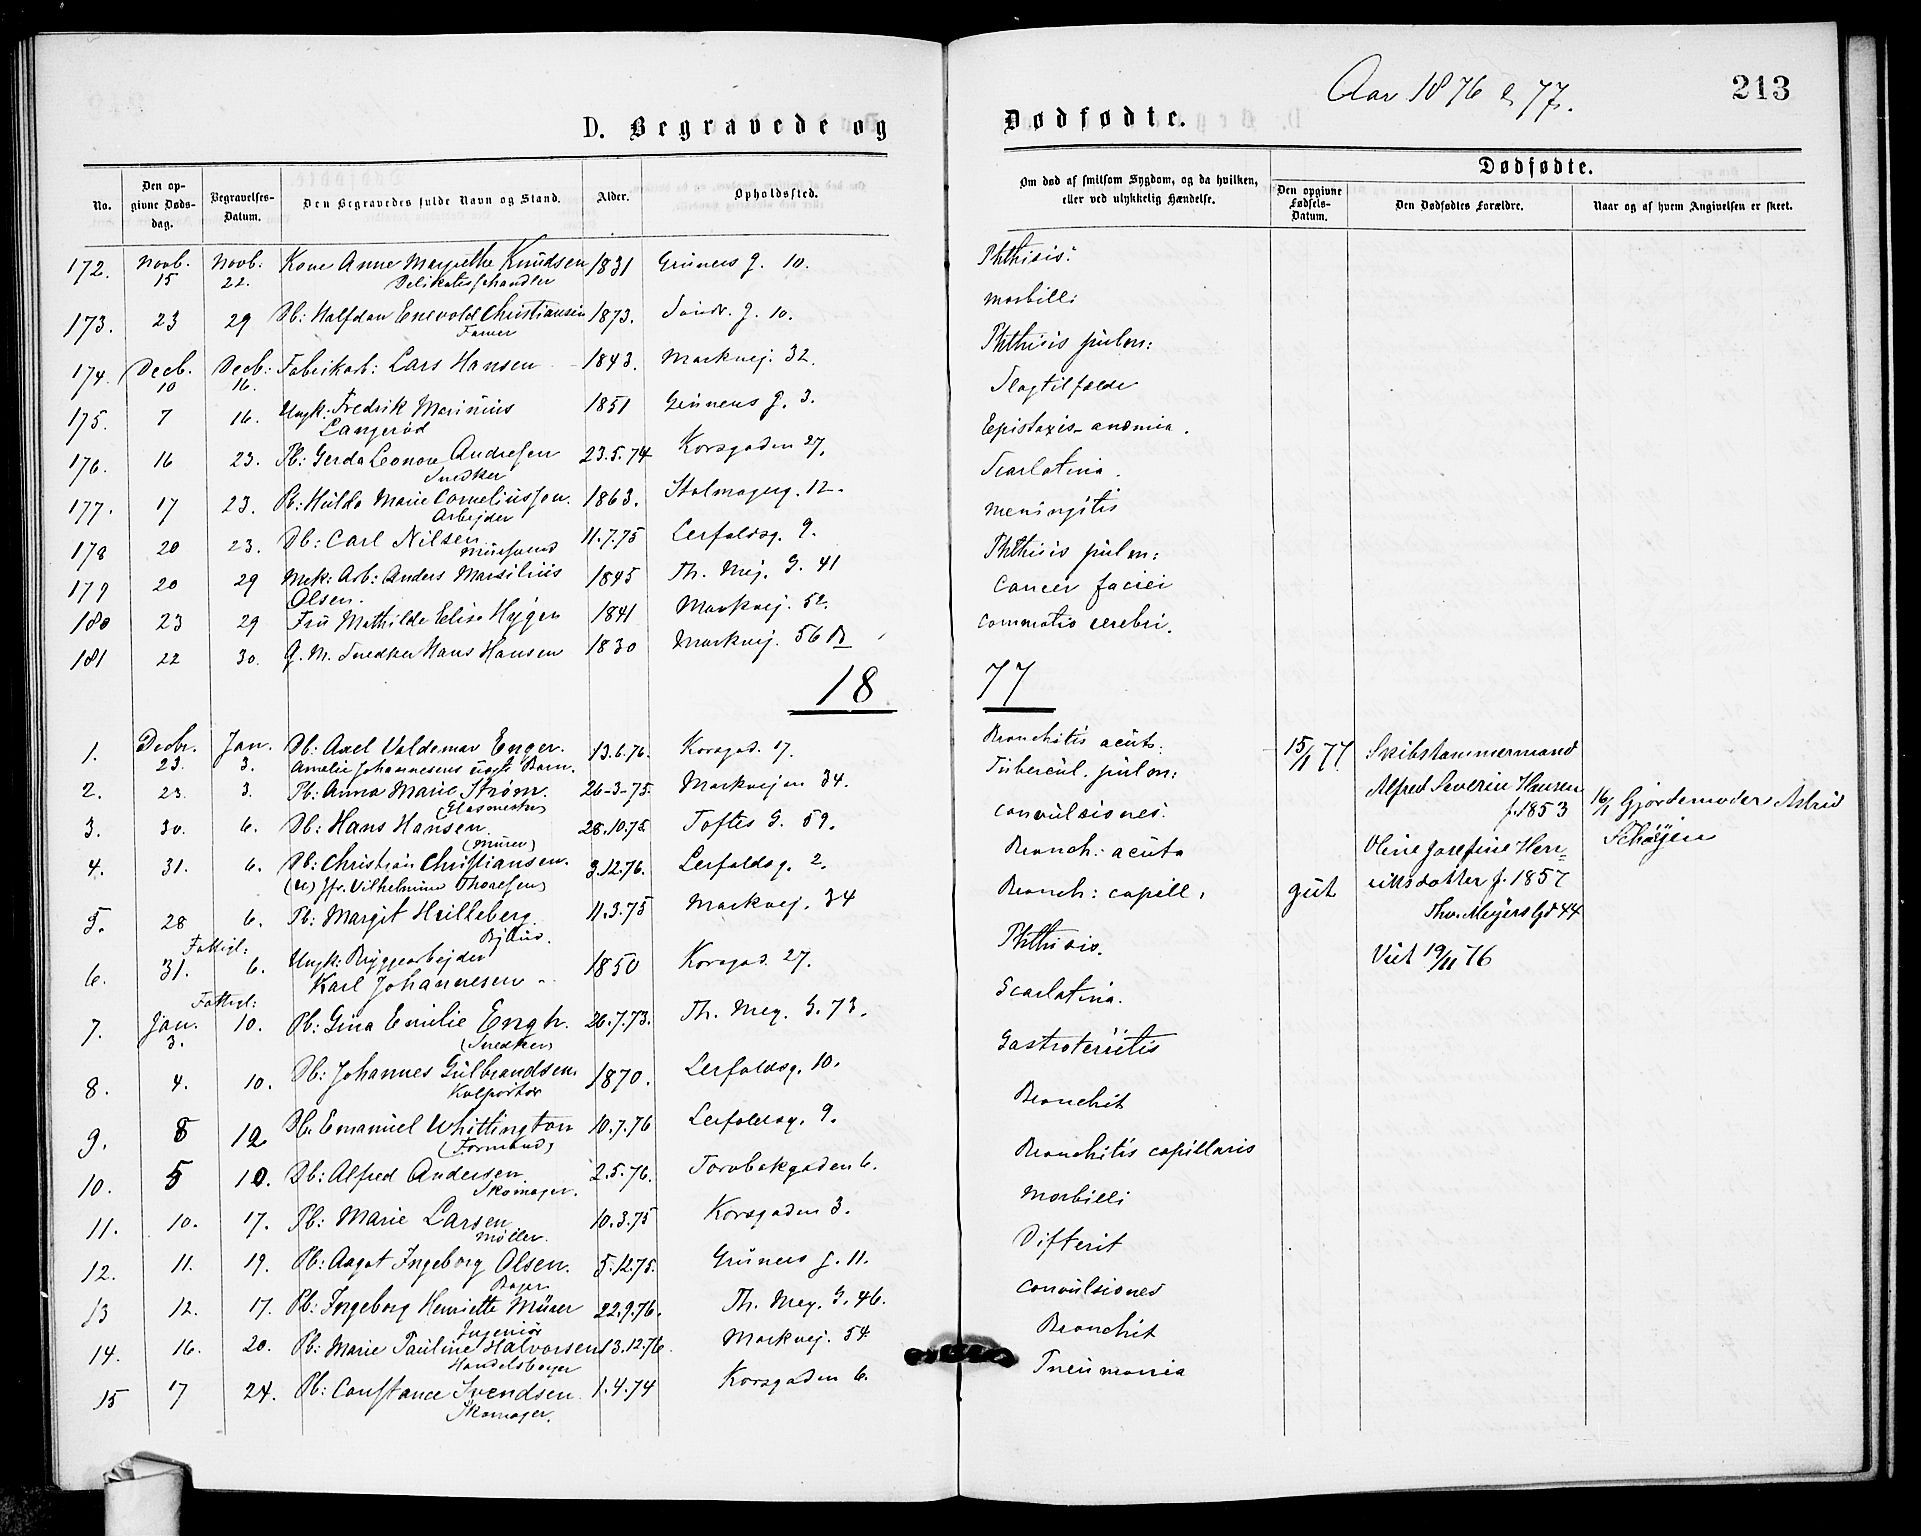 Aar 1876 & 77.
213
D. Begravede og Dødfødte.
No.
Den opgivne Dødsdag.
Begravelses-Datum.
Den Begravedes fulde Navn og Stand.
Alder.
Opholdssted.
Om død af smitsom Sygdom, og da hvilken, eller ved ulykkelig Hændelse.
Dødfødte.
Den opgivne Fødsels-Datum.
Den Dødfødtes Forældre.
Naar og af hvem Angivelsen er skeet.
172. Novb. 15 Novb. 22. Kone Anne Margrethe Knudsen 1831 Grüners g. 10. Phthisis.
Delikatessehandler
173. 23 29 Db: Halfdan Enevold Christiansen 1873. g. 10. Morbilli
Farver
174. Decb. 10 Decb. 16. Fabrikarb: Lars Hansen 1843. Markvej. 32. Phthisis pulm:
175. 7 16. Ungk: Fredrik Marinius 1851 Grüners g. 3. Slagtilfælde
Langerød
176. 16 23. Pb: Gerda Leonore Andresen 23.5.74 Korsgaden 27. Epistaxis-anæmia.
Snedker
177. 17 23. Pb: Hulda Marie Corneliussen. 1863. Stolmagerg. 12. Scarlatina.
Arbejder
178 20 23. Db: Carl Nilsen 11.7.75 Lerfaldsg. 9. Meningitis
Mursvend
179 20 29 Mek: Arb: Anders Marsilius 1845 Th. Mej. G. 41 Phthisis pulm:
Olsen.
180 23 29 Fru Mathilde Elise Hygen 1841 Markvej. 52. Cancer faciei
181 22 30. G. M. Snedker Hans Hansen 1830 Markvej. 56 B Commotio cerebri.
18 77
1. Decbr. 23. Jan. 3. Db: Axel Valdemar Enger. 13.6.76. Korsgad. 17. Bronchitis acuta.
Amelie Johannesens uægte Barn.
2. 23. 3. Pb: Anna Marie Strøm. 26-3-75. Markvejen 34. Tubercul. pulm:
(Glasmester)
3. 30. 6. Db: Hans Hansen. 28.10.75. Toftes G. 59. Convulsiones.
(Murer)
4. 31. 6. Db: Christian Christiansen. 3.12.76. Lerfaldsg. 2. Bronch: acuta
(u) Jfr. Vilhelmine Thoresen
5. 28 6. Pb: Margit Hilleberg. 11.3.75 Markvej. 34 Bronch: capill.
Fattigl:
6. 31. 6. Ungk: Bryggearbejder 1850 Korsgad. 27. Phthisis.
Karl Johannesen
Fattigl:
7. Jan. 3. 10. Pb: Gina Emilie Engh. 26.7.73. Th. Mey. G. 73. Scarlatina.
(Snedker)
8. 4. 10. Db: Johannes Gulbrandsen 1870. Lerfaldsg. 10. Gastroteritis
Kolportør
9. 8 12 Db. Emanuel Whittington 10.7.76 Lerfaldsg. 9. Bronchit
(Formand)
10. 5 10. Db: Alfred Andersen. 2.5.76. Torvbakgaden 6. Bronchitis capillaris
Skomager.
11. 10. 17. Pb: Marie Larsen 10.3.75 Korsgaden 3. Morbilli
Møller.
12. 11. 19. Pb: Aagot Ingeborg Olsen. 5.12.75. Grüners g. 11. Difterit
Bager
13 12. 17. Pb: Ingeborg Henriette Mürer 22.9.76. Th. Mey. G. 46. Convulsiones
Ingeniør
14. 16. 20. Pb: Marie Pauline Halvorsen 13.12.76. Markvej. 54 Bronchit
Handelsbager
15 17 24. Pb: Constance Svendsen. 1.4.74 Korsgaden 6. Pneumonia
Skomager.
15/1 77
Skibstømmermand
Alfred Severin Hansen
f. 1853
Oline Josefine Hen-
riksdotter f. 1857
Thv. Meyers Gd 44
gut
Viet 19/11 76
16/1 Gjordemoder Astrid
Schøyen